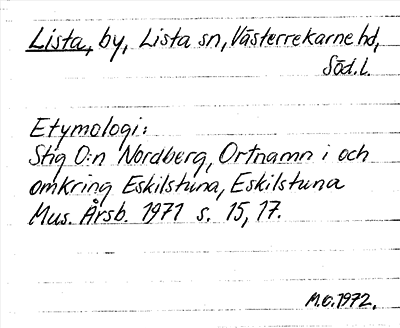 Lista, by, Lista sn, Västerrekarne hd,
Söd.l.
Etymologi:
Stig O:n Nordberg, Ortnamn i och
omkring Eskilstuna, Eskilstuna
Mus. Årsb. 1971 s. 15, 17.
M.O. 1972.